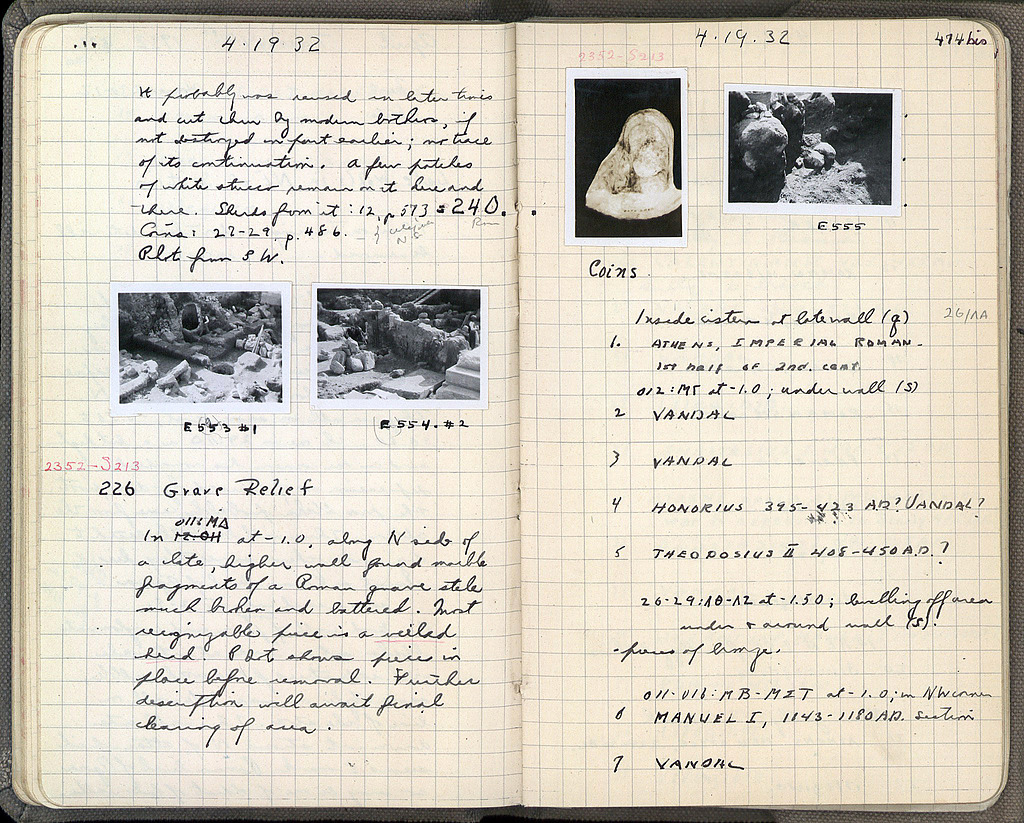 4.19.32
It probably was reused in later times
and cut thru by modern bothros, if
not destroyed in part earlier; no trace
of its continuation. A few patches
of white stucco remain on it here and
there. Sherds from it: 12, p. 573 = 240.
Coins: 27-29, p. 486.
Phot from SW.
E553 #1
E554. #2
2352-S213
226 Grave Relief
011: MΔ
In 12:OH at -1.0, along N side of
a late, higher wall found marble
fragments of a Roman grave stele
much broken and battered. Most
recognizable piece is a veiled
head. Phot shows pieces in
place before removal. Further
description will await final
clearing of area.
4.19.32
474 bis
2352-S213
E555
Coins.
Inside cistern at late wall (q)
26/ΛΑ
1. ATHENS, IMPERIAL ROMAN.
1st half of 2nd. cent.
012: MΓ at -1.0; under wall (S)
2 VANDAL
3 VANDAL
4 HONORIUS 395-423 AD? VANDAL?
5 THEODOSIUS II 408-450 A.D.?
26-29: ΛΘ-ΛΖ at -1.50; levelling off area
under & around wall (S).
-pieces of bronze.
011-016: MB-MIT at -1.0; in NW corner
6 MANUEL I, 1143-1180 AD. section
7 VANDAL